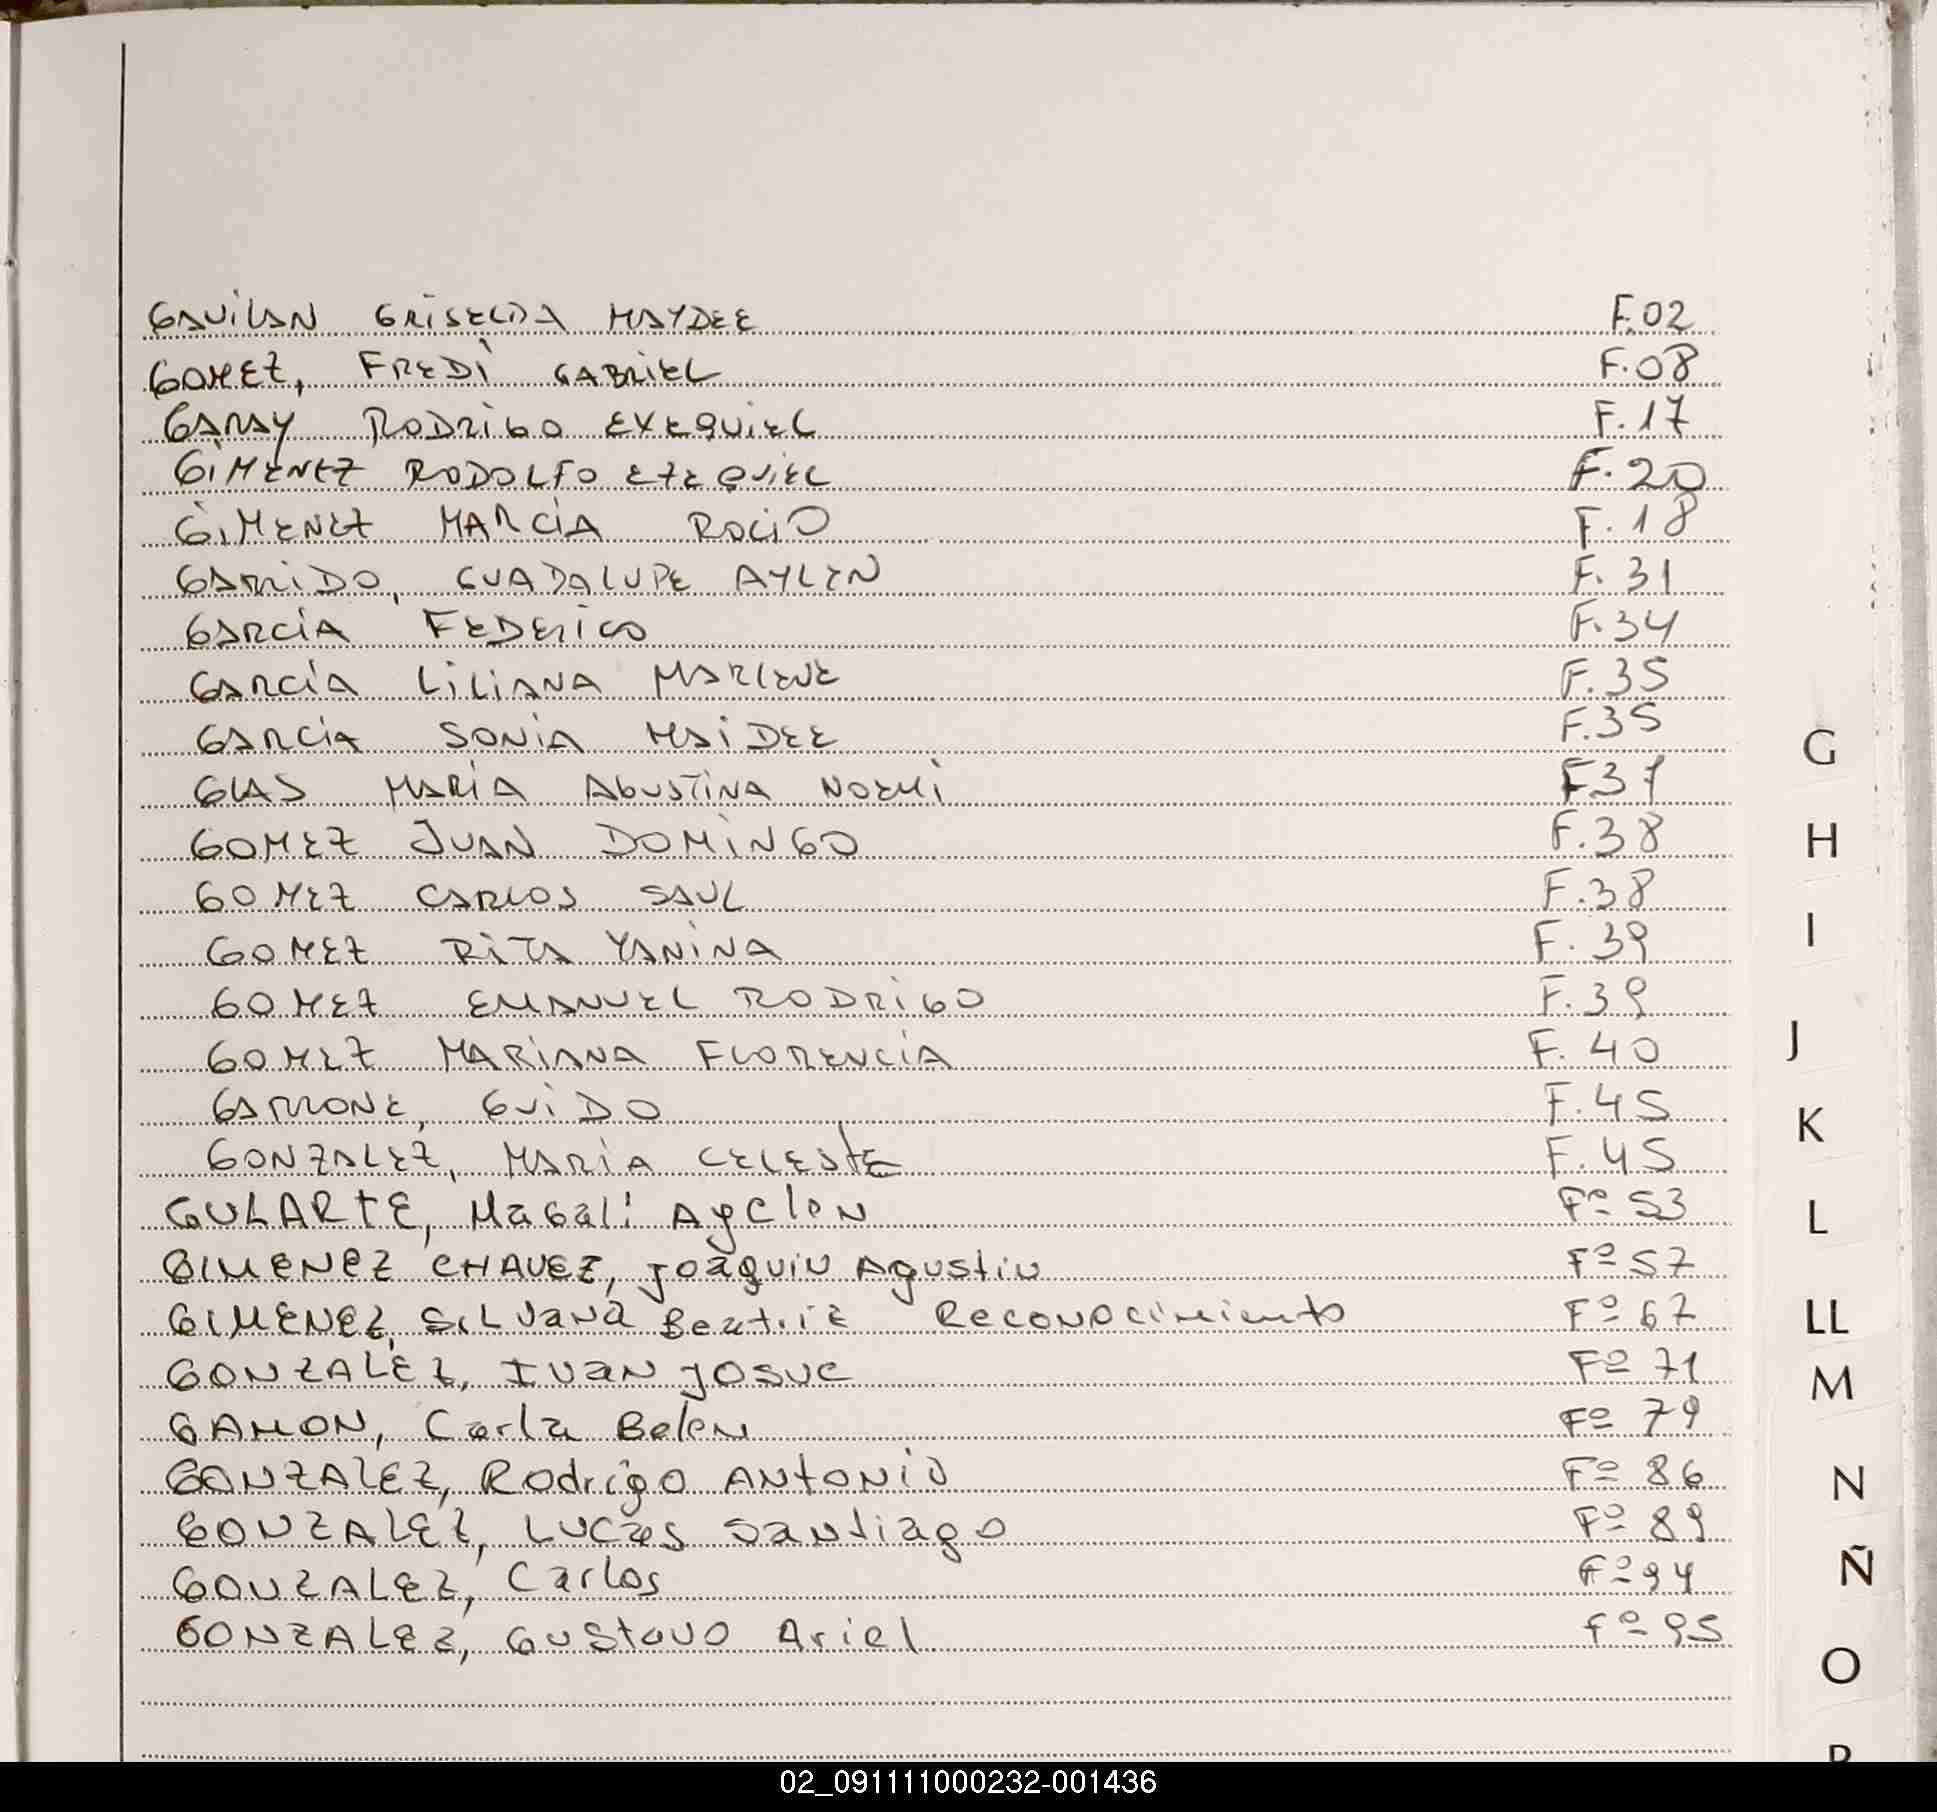 GAVILAN GRISELDA HAYDEE F.02
GOMEZ, FREDI GABRIEL F.08
GARAY RODRIGO EXEQUIEL F.17
GIMENEZ RODOLFO EZEQUIEL F.20
GIMENEZ MARCIA ROCIO F.18
GARRIDO, GUADALUPE AYLEN F.31
GARCIA FEDERICO F.34
GARCIA LILIANA MARLENE F.35
GARCIA SONIA HAIDEE F.35
GLAS MARIA AGUSTINA NOEMI F37
GOMEZ JUAN DOMINGO F.38
GOMEZ CARLOS SAUL F.38
GOMEZ RITA YANINA F.39
GOMEZ EMANUEL RODRIGO F.39
GOMEZ MARIANA FLORENCIA F.40
GARRONE, GUIDO F.45
GONZALEZ, MARIA CELESTE F.45
GULARTE, Magali Ayelen Fº 53
GIMENEZ CHAVEZ, Joaquin Agustin Fº 57
GIMENEZ, Silvana Beatriz Reconocimiento Fº 67
GONZALEZ, Ivan Josue Fº 71
GAMON, Carla Belen Fº 79
GONZALEZ, Rodrigo Antonio Fº 86
GONZALEZ, Lucas Santiago Fº 89
GONZALEZ, Carlos Fº 94
GONZALEZ, Gustavo Ariel Fº 95
G
H
I
J
K
L
LL
M
N
Ñ
O
P
02_091111000232-001436